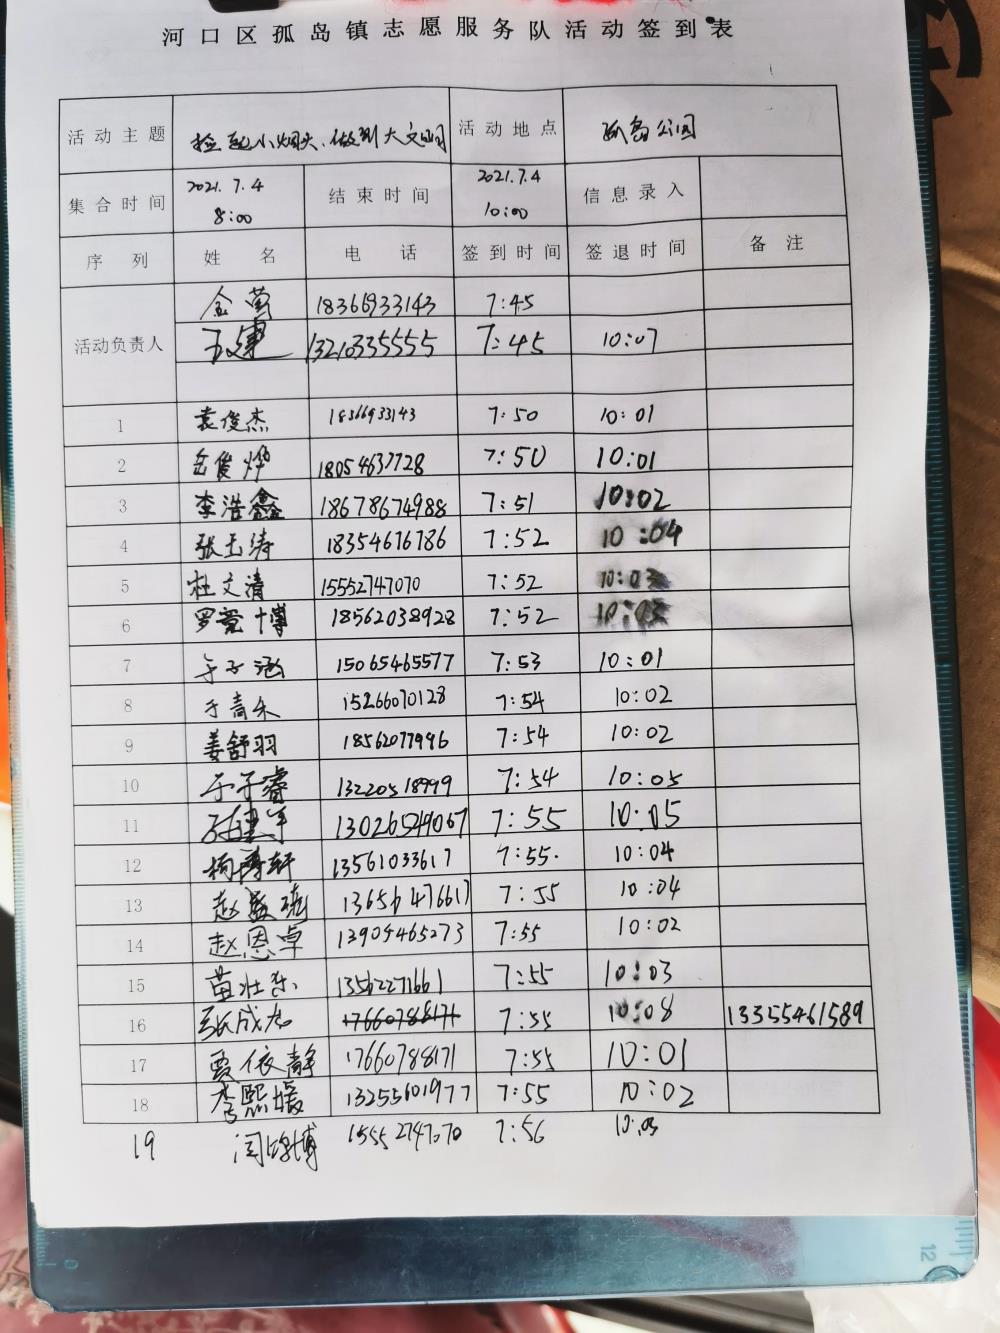 河口区孤岛镇志愿服务队活动签到表
活动主题 捡起小烟头、做到大文明 活动地点 孤岛公园
集合时间 2021.7.4 8:00 结束时间 2021.7.4 10:00 信息录入
序列 姓名 电话 签到时间 签退时间 备注
活动负责人
金菊 18366933143 7:45
13210335555 7:45 10:07
1 袁俊杰 18366933143 10:01 7:50
2 岳俊烨 18054637728 7:50 10:01
3 李浩鑫 18678674988 7:51 10:02
4 张玉涛 18354676786 7:52 10:04
5 杜文清 15552747070 7:52 10:03
6 18562038928 7:52 10:03
7 于子涵 15065465577 7:53 10:01
8 于青禾 15266070128 7:54 10:02
9 姜舒羽 18562077996 7:54 10:02
10 于子睿 13220518999 7:54 10:05
11 13026549067 7:55 10:05
12 13561033617 7:55. 10:04
13 7:55 10:04
14 赵恩卓 13904465273 7:55 10:02
15 苗壮 13562271661 7:55 10:03
16 17660788171 7:55 10:08 13355461589
17 贾依静 17660788171 7:55 10:01
18 李熙媛 13255601977 7:55 10:02
19 15552747070 7:56 10:03
12